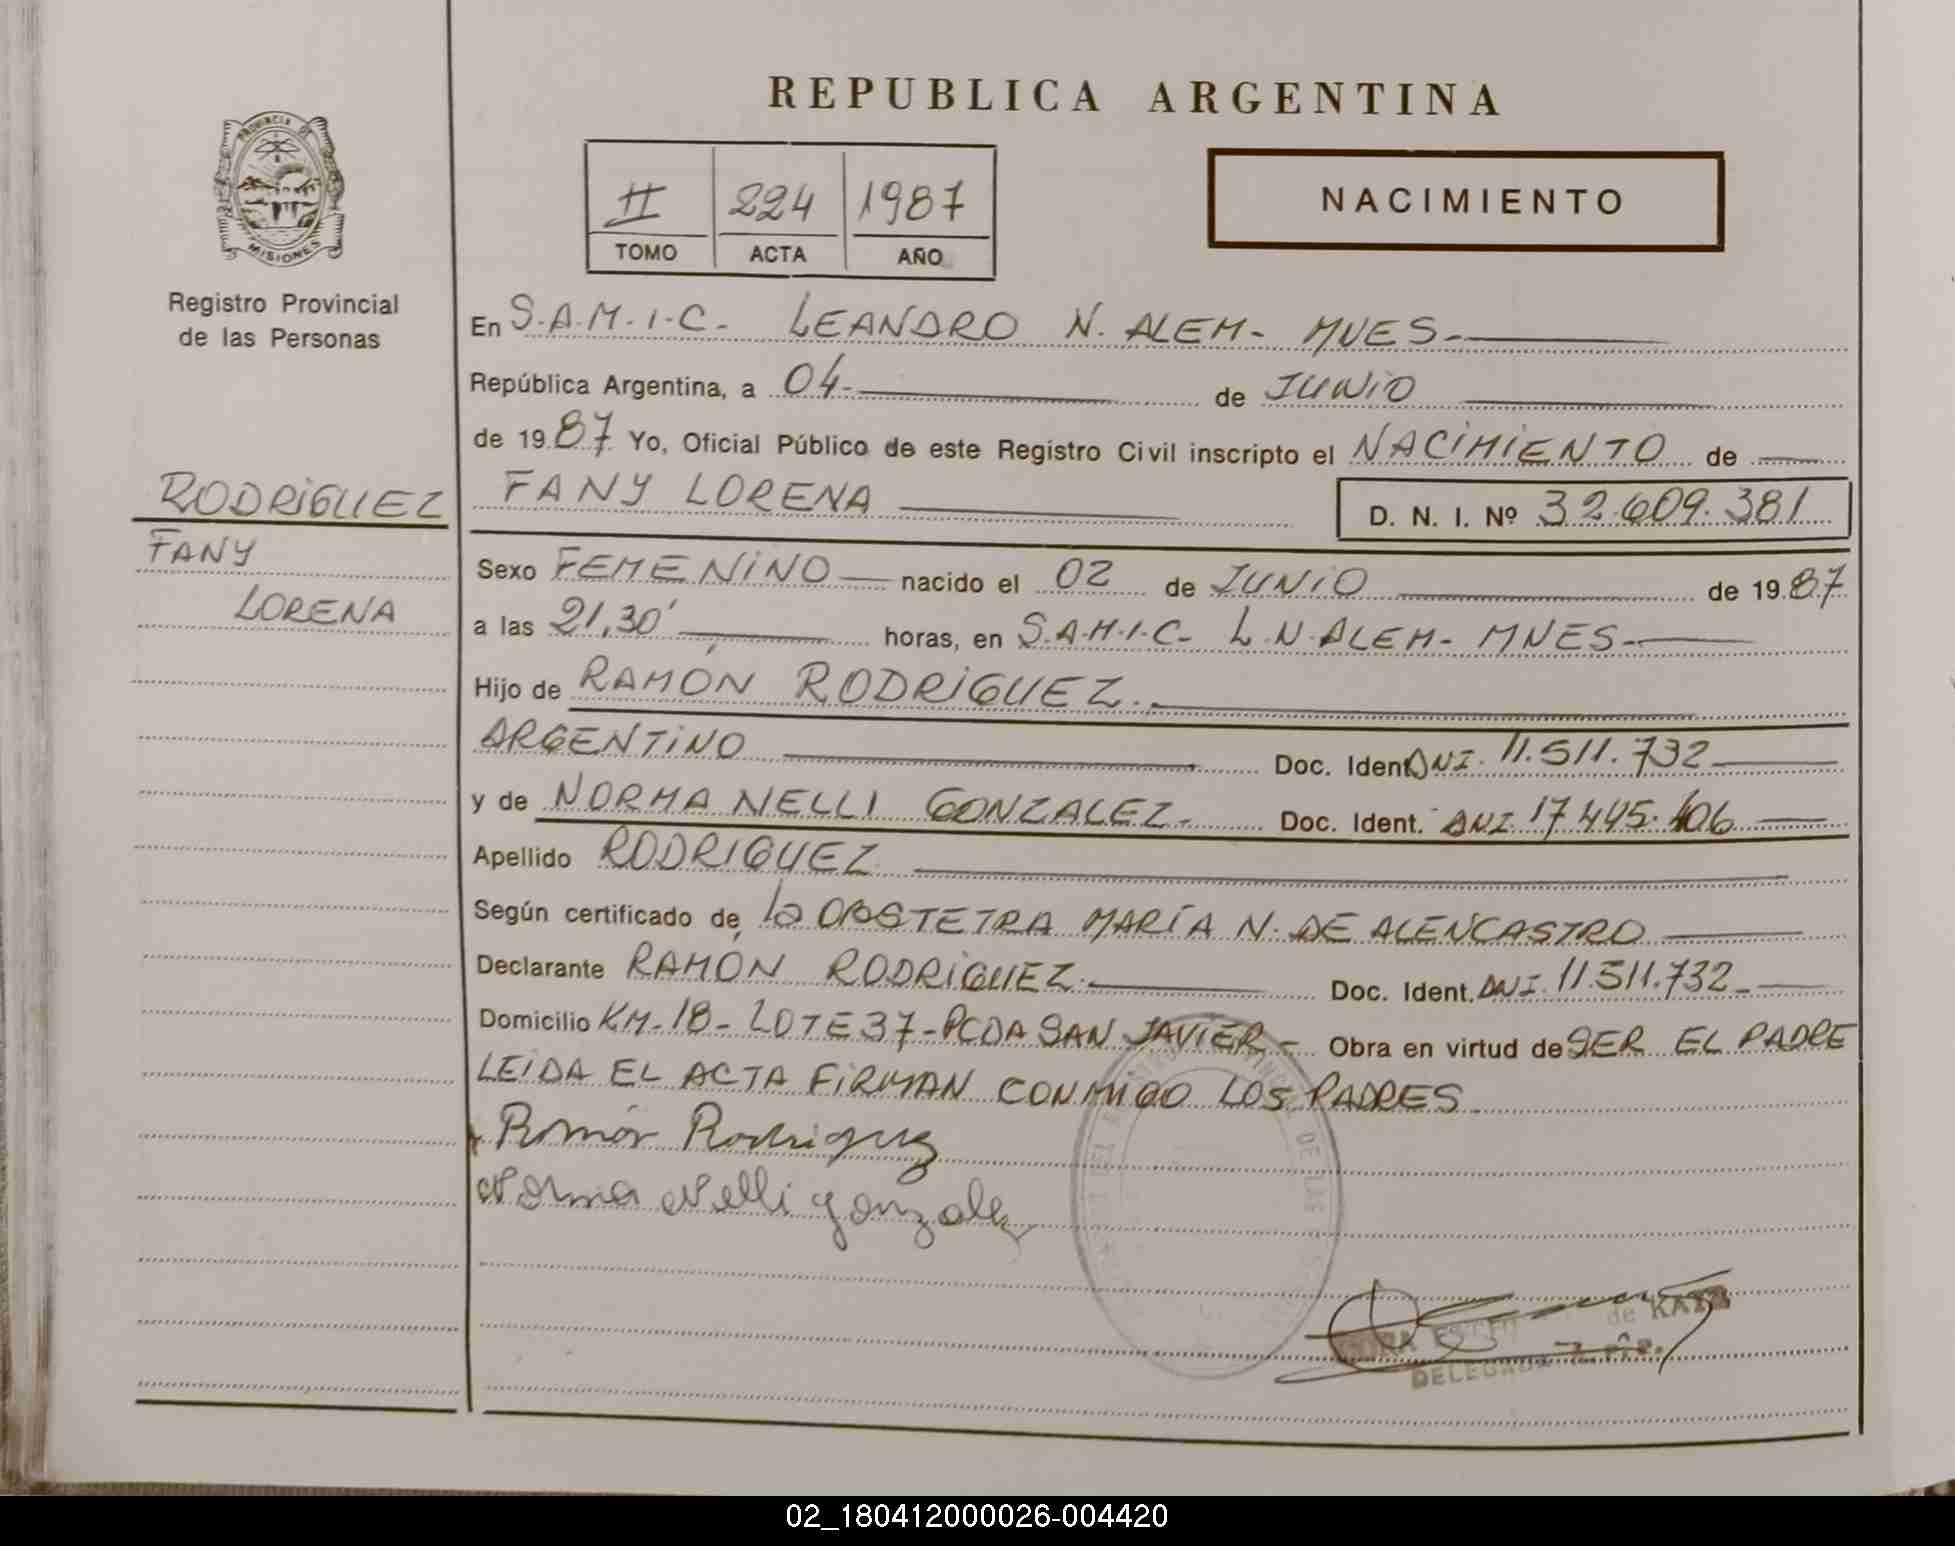 REPUBLICA ARGENTINA
PROVINCIA DE
MISIONES
Registro Provincial
de las Personas
II 224 1987
TOMO ACTA AÑO
NACIMIENTO
En S.A.M.I.C. LEANDRO N. ALEM- MNES-
República Argentina, a 04- de JUNIO
de 1987 Yo, Oficial Público de este Registro Civil inscripto el NACIMIENTO de
RODRIGUEZ
FANY
LORENA
FANY LORENA D. N. I. Nº 32.609.381
Sexo FEMENINO nacido el 02 de JUNIO de 1987
a las 21,30' horas, en S.A.M.I.C- L.N.ALEM- MNES-
Hijo de RAMÓN RODRIGUEZ.
ARGENTINO Doc. Ident. DNI. 11.511.732
y de NORMA NELLI GONZALEZ- Doc. Ident. DNI 17.445.106
Apellido RODRIGUEZ
Según certificado de la OBSTETRA MARÍA N. DE ALENCASTRO
Declarante RAMÓN RODRIGUEZ. Doc. Ident. DNI. 11.511.732-
Domicilio KM-18- LOTE 37-PCDA SAN JAVIER- Obra en virtud de SER EL PADRE
LEIDA EL ACTA FIRMAN CONMIGO LOS PADRES
Ramón Rodriguez
Norma Nelli gonzalez
de KATZ
02_180412000026-004420